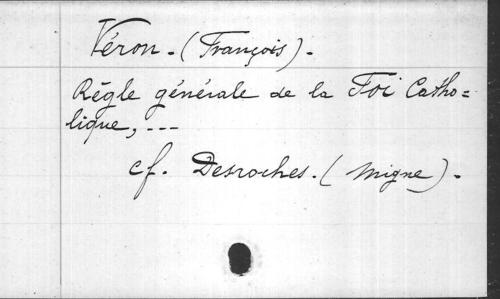 Véron. (François).
Règle générale de la Foi Catho=
lique, ---
cf. Desroches. (Migne).